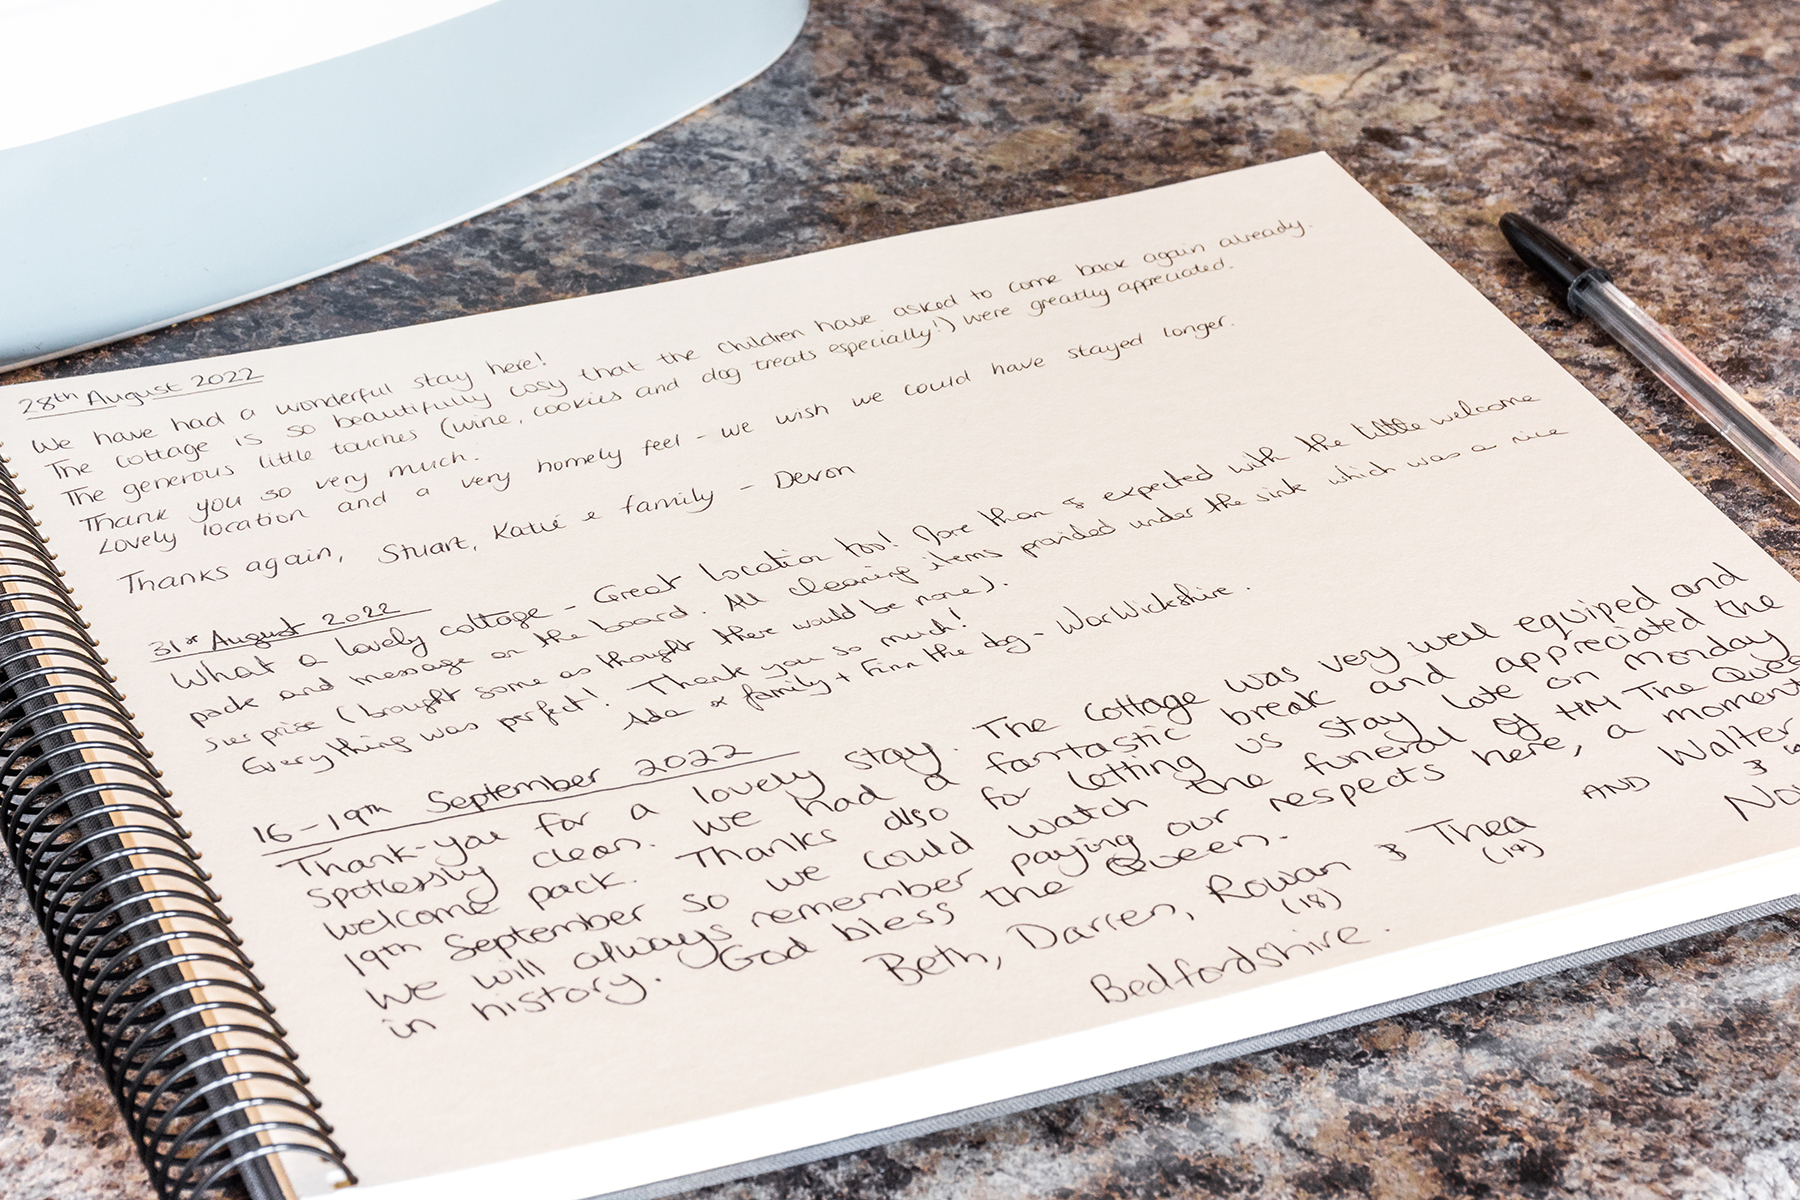 28th August 2022
We have had a wonderful stay here!
The cottage is so beautifully cosy that the children have asked to come back again already.
The generous little touches (wine, cookies and dog treats especially!) were greatly appreciated.
Thank you so very much.
Lovely location and a very homely feel - we wish we could have stayed longer.
Thanks again, Stuart, Katie & family - Devon
31st August 2022
What a lovely cottage - Great location too! More than I expected with the little welcome
pack and message on the board. All cleaning items provided under the sink which was a nice
surprise (brought some as thought there would be none).
Everything was perfect! Thank you so much!
Ada & family + Finn the dog - Warwickshire.
16-19th September 2022
Thank-you for a lovely stay. The cottage was very well equiped and
spotlessly clean. We had a fantastic break and appreciated the
welcome pack. Thanks also for letting us stay late on Monday
19th September so we could watch the funeral of HM The Quee
We will always remember paying our respects here, a moment
in history. God bless the Queen.
Beth, Darren, Rowan & Thea AND Walter
(18) (14) &
Bedfordshire.